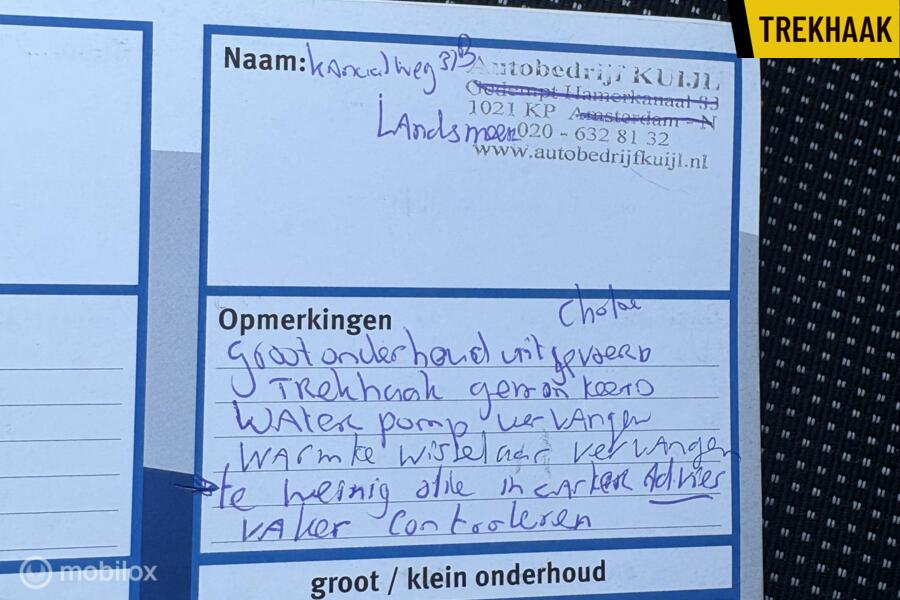 TREKHAAK
Naam: kanaalweg 37B
Autobedrijf KUIJL
Oedempt Hamerkanaal 33
1021 KP Amsterdam - N
Landsmeer
020 - 632 81 32
www.autobedrijfkuijl.nl
Opmerkingen
groot onderhoud uitgevoerd
TRekhaak gemonteerd
WAter pomp vervangen
WARmte wisselaar vervangen
te weinig olie in carter Advies
VAker controleren
groot / klein onderhoud
mobilox